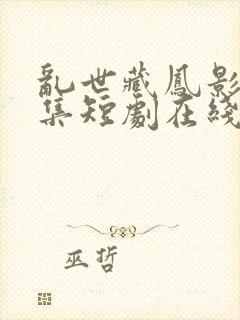 亂世藏鳳影
集短劇在綫
巫哲